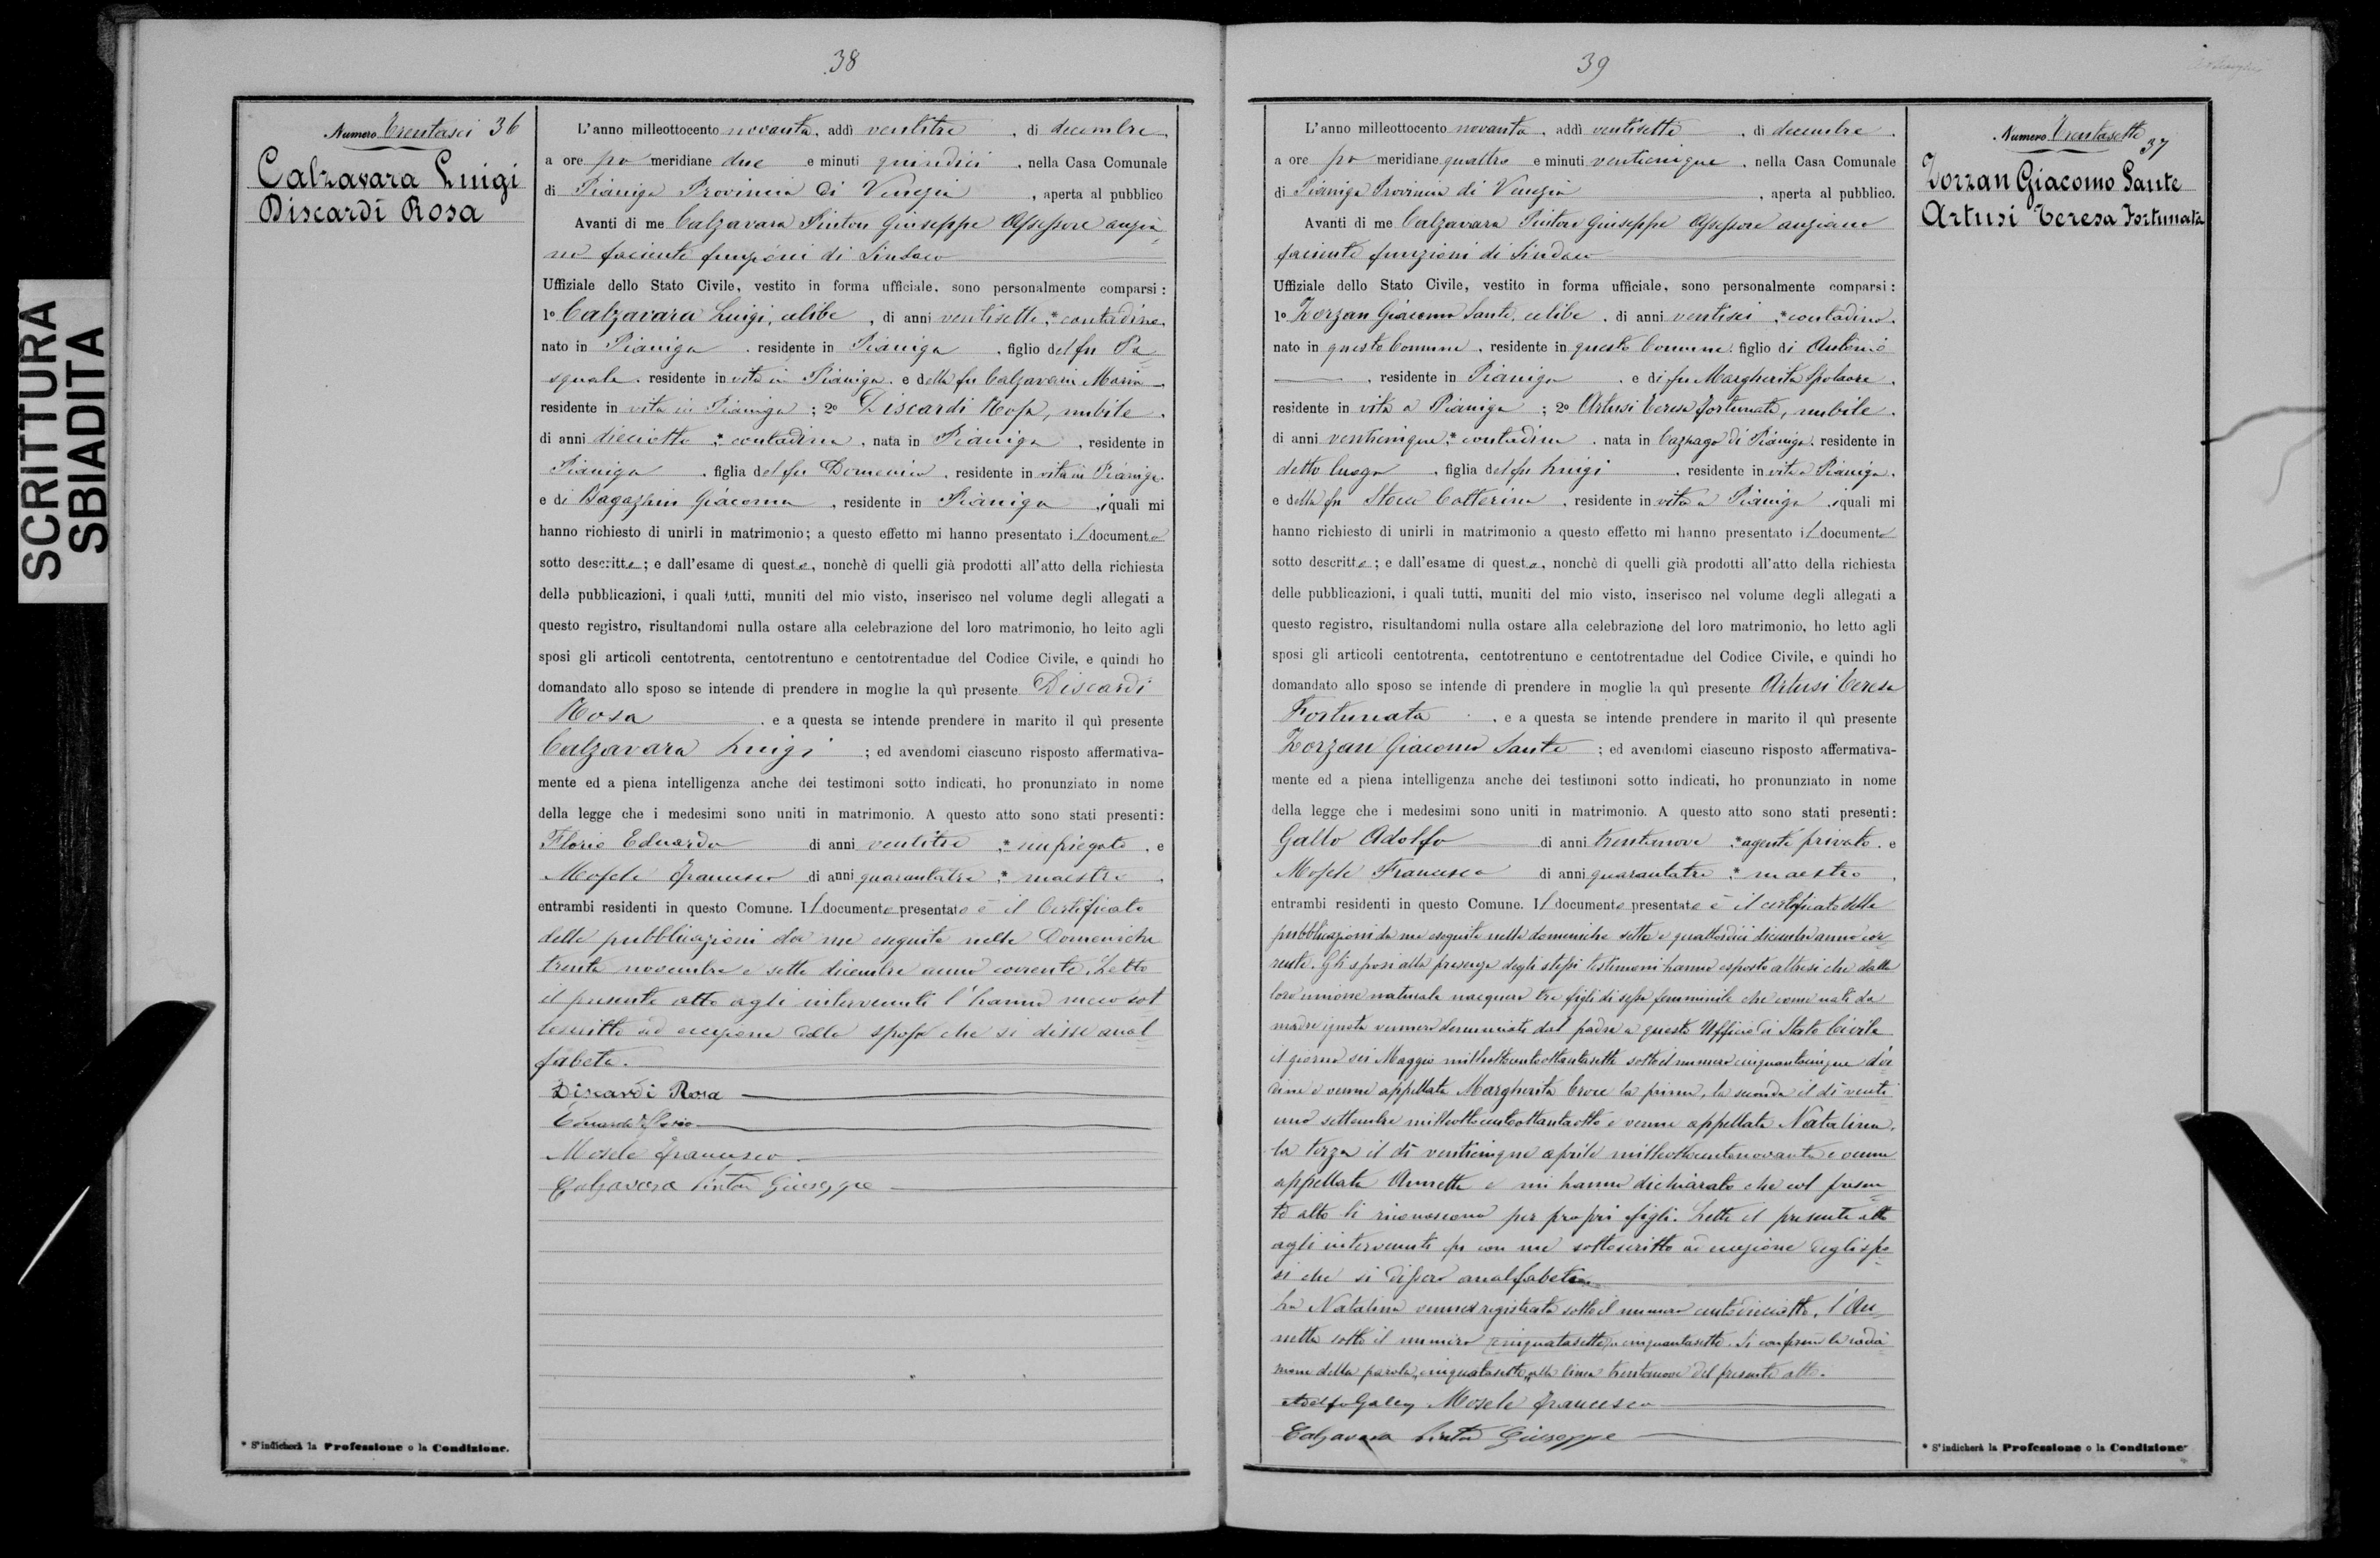 SCRITTURA
SBIADITA
38
Numero Trentasei 36
Calzavara Luigi
Discardi Rosa
L'anno milleottocento novanta, addì ventitre, di decembre,
a ore po meridiane due e minuti quindici, nella Casa Comunale
di Pianiga Provincia di Venezia, aperta al pubblico
Avanti di me Calzavara Pinton Giuseppe Assessore anzia
no faciente funzioni di Sindaco
Uffiziale dello Stato Civile, vestito in forma ufficiale, sono personalmente comparsi:
1º Calzavara Luigi, celibe, di anni ventisette, * contadino,
nato in Pianiga, residente in Pianiga, figlio del fu Pa
squale, residente in vita in Pianiga, e della fu Calzavara Maria,
residente in vita in Pianiga; 2º Discardi Rosa, nubile,
di anni dieciotto, * contadina, nata in Pianiga, residente in
Pianiga, figlia del fu Domenico, residente in vita in Pianiga,
e di Bagazzin Giacoma, residente in Pianiga, i quali mi
hanno richiesto di unirli in matrimonio; a questo effetto mi hanno presentato il documento
sotto descritto; e dall'esame di questo, nonchè di quelli già prodotti all'atto della richiesta
delle pubblicazioni, i quali tutti, muniti del mio visto, inserisco nel volume degli allegati a
questo registro, risultandomi nulla ostare alla celebrazione del loro matrimonio, ho letto agli
sposi gli articoli centotrenta, centotrentuno e centotrentadue del Codice Civile, e quindi ho
domandato allo sposo se intende di prendere in moglie la quì presente Discardi
Rosa, e a questa se intende prendere in marito il quì presente
Calzavara Luigi; ed avendomi ciascuno risposto affermativa-
mente ed a piena intelligenza anche dei testimoni sotto indicati, ho pronunziato in nome
della legge che i medesimi sono uniti in matrimonio. A questo atto sono stati presenti:
Florio Eduardo di anni ventitre, * impiegato, e
Mosele Francesco di anni quarantatre, * maestro,
entrambi residenti in questo Comune. Il documento presentato è il Certificato
delle pubblicazioni da me eseguite nelle Domeniche
trenta novembre e sette dicembre anno corrente. Letto
il presente atto agli intervenuti l'hanno meco sot
toscritto ad eccezione della sposa che si disse anal
fabeta.
Discardi Rosa
Eduardo Florio
Mosele Francesco
Calzavara Pinton Giuseppe
* S'indicherà la Professione o la Condizione.
39
Numero Trentasette
37
Zorzan Giacomo Sante
Artusi Teresa Fortunata
L'anno milleottocento novanta, addì ventisette, di decembre,
a ore po meridiane quattro e minuti venticinque, nella Casa Comunale
di Pianiga Provincia di Venezia, aperta al pubblico.
Avanti di me Calzavara Pinton Giuseppe Assessore anziano
faciente funzioni di Sindaco
Uffiziale dello Stato Civile, vestito in forma ufficiale, sono personalmente comparsi:
1º Zorzan Giacomo Sante, celibe, di anni ventisei, * contadino,
nato in questo Comune, residente in questo Comune, figlio di Antonio
, residente in Pianiga, e di fu Margherita Spolaore,
residente in vita a Pianiga; 2º Artusi Teresa Fortunata, nubile,
di anni venticinque, * contadina, nata in Cazzago di Pianiga, residente in
detto luogo, figlia del fu Luigi, residente in vita a Pianiga,
e della fu Catterina, residente in vita a Pianiga, i quali mi
hanno richiesto di unirli in matrimonio a questo effetto mi hanno presentato il documento
sotto descritto; e dall'esame di questo, nonchè di quelli già prodotti all'atto della richiesta
delle pubblicazioni, i quali tutti, muniti del mio visto, inserisco nel volume degli allegati a
questo registro, risultandomi nulla ostare alla celebrazione del loro matrimonio, ho letto agli
sposi gli articoli centotrenta, centotrentuno e centotrentadue del Codice Civile, e quindi ho
domandato allo sposo se intende di prendere in moglie la quì presente Artusi Teresa
Fortunata, e a questa se intende prendere in marito il quì presente
Zorzan Giacomo Sante; ed avendomi ciascuno risposto affermativa-
mente ed a piena intelligenza anche dei testimoni sotto indicati, ho pronunziato in nome
della legge che i medesimi sono uniti in matrimonio. A questo atto sono stati presenti:
Gallo Adolfo di anni trentanove, * agente privato, e
Mosele Francesco di anni quarantatre, * maestro,
entrambi residenti in questo Comune. Il documento presentato è il certificato delle
pubblicazioni da me eseguite nelle domeniche sette e quattordici dicembre anno cor
rente. Gli sposi alla presenza degli stessi testimoni hanno esposto altresì che dalla
loro unione naturale nacquero tre figli di sesso femminile che come nati da
madre ignota vennero denunciati dal padre a questo Ufficio di Stato Civile
il giorno sei Maggio milleottocentottantasette sotto il numero cinquantacinque d'or
dine e venne appellata Margherita Croce la prima, la seconda il dì venti
uno settembre milleottocentottantaotto e venne appellata Natalina,
la terza il dì venticinque aprile milleottocentonovanta e venne
appellata Annetta e mi hanno dichiarato che col presen
te atto li riconoscono per propri figli. Letto il presente atto
agli intervenuti fu con me sottoscritto ad eccezione degli spo
si che si dissero analfabeti.
La Natalina venne registrata sotto il numero centodieciotto, l'An
netta sotto il numero cinquatasette, cinquantasette. Si conferma la
della parola "cinquatasette" alla linea trentanove del presente atto.
Adolfo Gallo Mosele Francesco
Calzavara Pinton Giuseppe
* S'indicherà la Professione o la Condizione